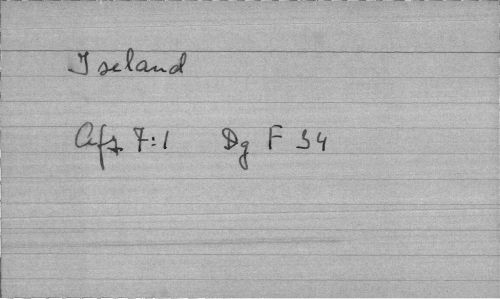 Iseland
Afs 7:1 Dg F 34